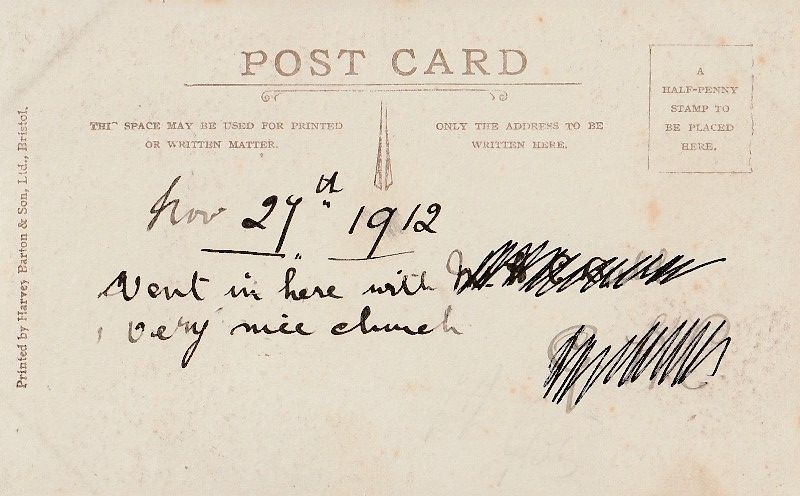 POST CARD
THIS SPACE MAY BE USED FOR PRINTED
OR WRITTEN MATTER.
ONLY THE ADDRESS TO BE
WRITTEN HERE.
A
HALF-PENNY
STAMP TO
BE PLACED
HERE.
Printed by Harvey Barton & Son, Ltd., Bristol.
Nov 27th 1912
Went in here with
very nice church